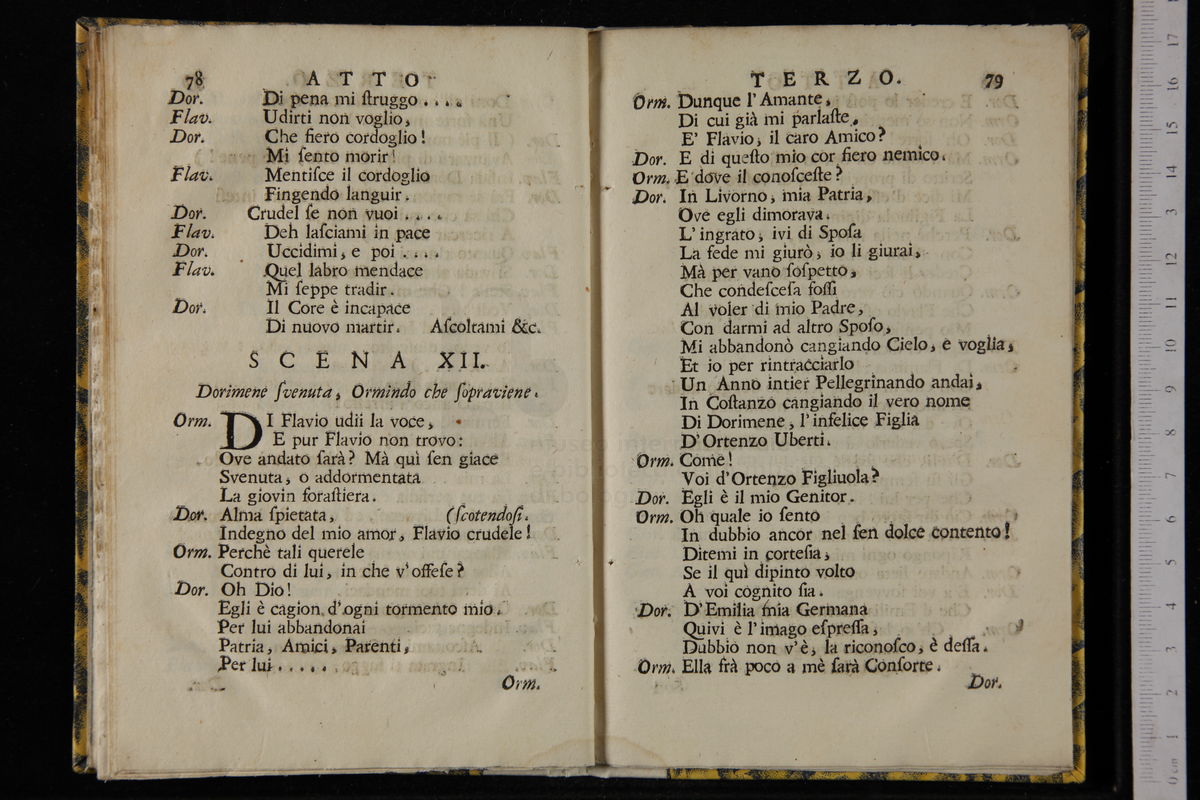 78 ATTO
Dor. Di pena mi ſtruggo . . . .
Flav. Udirti non voglio,
Dor. Che fiero cordoglio!
Mi ſento morir!
Flav. Mentiſce il cordoglio
Fingendo languir.
Dor. Crudel ſe non vuoi . . . .
Flav. Deh laſciami in pace
Dor. Uccidimi, e poi . . . .
Flav. Quel labro mendace
Mi ſeppe tradir.
Dor. Il Core è incapace
Di nuovo martir. Aſcoltami &c.
SCENA XII.
Dorimene ſvenuta, Ormindo che ſopraviene.
Orm. DI Flavio udii la voce,
E pur Flavio non trovo:
Ove andato ſarà? Mà quì ſen giace
Svenuta, o addormentata
La giovin foraſtiera.
Dor. Alma ſpietata, (ſcotendoſi.
Indegno del mio amor, Flavio crudele!
Orm. Perchè tali querele
Contro di lui, in che v'offeſe?
Dor. Oh Dio!
Egli è cagion d'ogni tormento mio.
Per lui abbandonai
Patria, Amici, Parenti,
Per lui . . . . .
Orm.
TERZO. 79
Orm. Dunque l'Amante,
Di cui già mi parlaſte,
E' Flavio, il caro Amico?
Dor. E di queſto mio cor fiero nemico.
Orm. E dove il conoſceſte?
Dor. In Livorno, mia Patria,
Ove egli dimorava.
L'ingrato, ivi di Spoſa
La fede mi giurò, io li giurai,
Mà per vano ſoſpetto,
Che condeſceſa foſſi
Al voler di mio Padre,
Con darmi ad altro Spoſo,
Mi abbandonò cangiando Cielo, e voglia,
Et io per rintracciarlo
Un Anno intier Pellegrinando andai,
In Coſtanzo cangiando il vero nome
Di Dorimene, l'infelice Figlia
D'Ortenzo Uberti.
Orm. Come!
Voi d'Ortenzo Figliuola?
Dor. Egli è il mio Genitor.
Orm. Oh quale io ſento
In dubbio ancor nel ſen dolce contento!
Ditemi in corteſia,
Se il quì dipinto volto
A voi cognito ſia.
Dor. D'Emilia mia Germana
Quivi è l'imago eſpreſſa,
Dubbio non v'è, la riconoſco, è deſſa.
Orm. Ella frà poco a mè ſarà Conſorte.
Dor.
0 cm 1 2 3 4 5 6 7 8 9 10 11 12 13 14 15 16 17